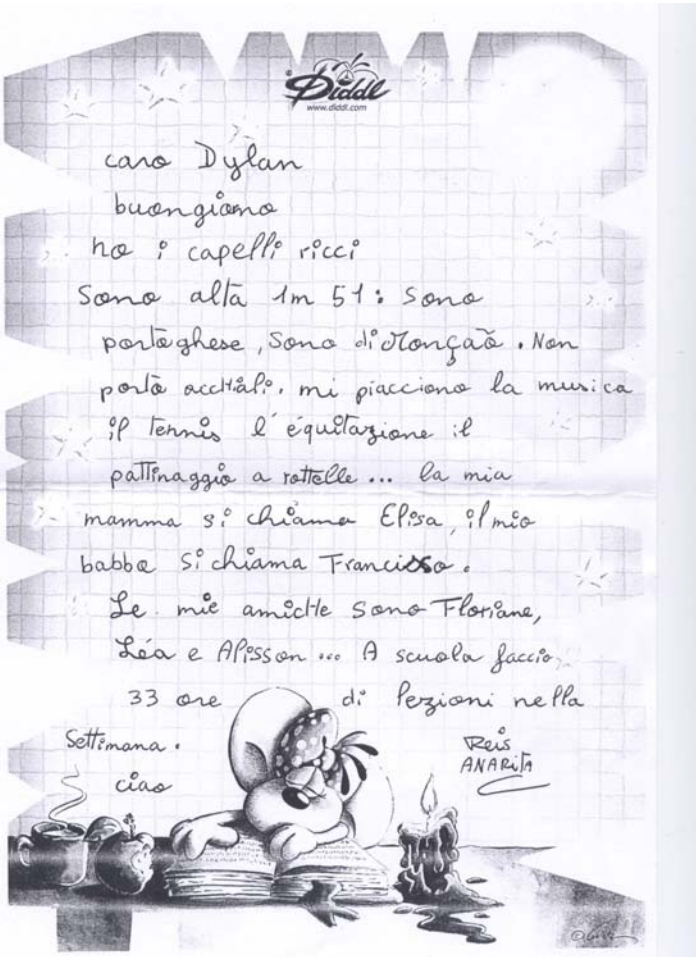 Diddl
www.diddl.com
caro Dylan
buongiorno
ho i capelli ricci
Sono alta 1m 51: Sono
portoghese, Sono di Monção. Non
porto occhiali. mi piacciono la musica
il tennis l'équitazione il
pattinaggio a rottelle... la mia
mamma si chiama Elisa, il mio
babbo Si chiama Francisso.
Le mie amiche Sono Floriane,
Léa e Alisson... A scuola faccio
33 ore di lezioni nella
Settimana.
ciao
Reis
ANARitA